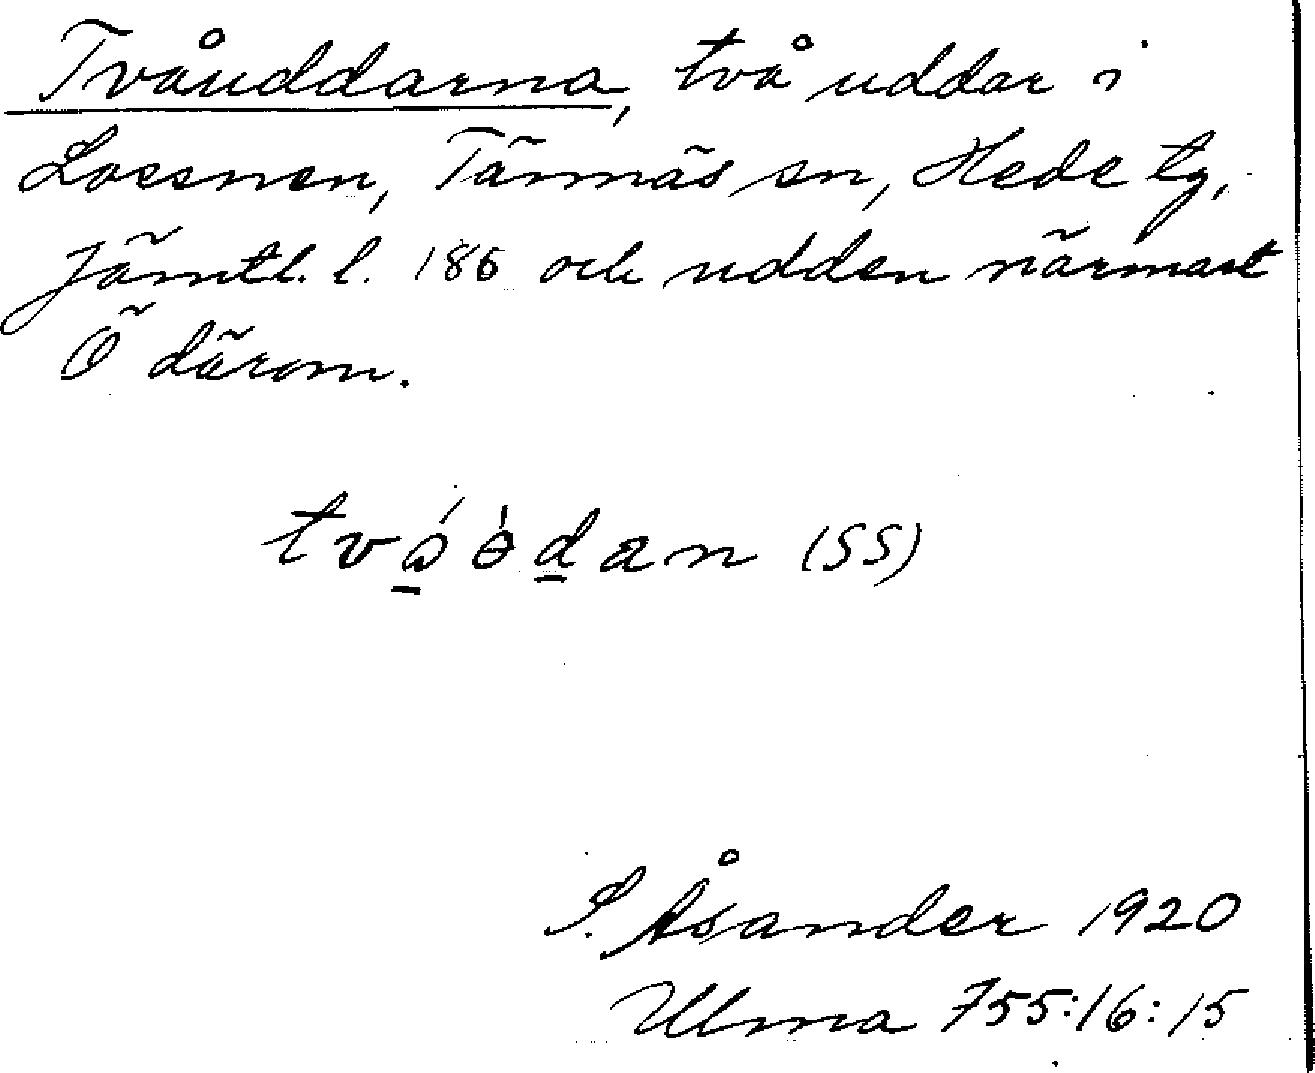 Tvåuddarna, två uddar i
Lossnen, Tännäs sn, Hede tg,
Jämtl. l. 186 och udden närmast
Ö därom.
tvɷ́ èdan (SS)
S. Åsander 1920
Ulma 755:16:15